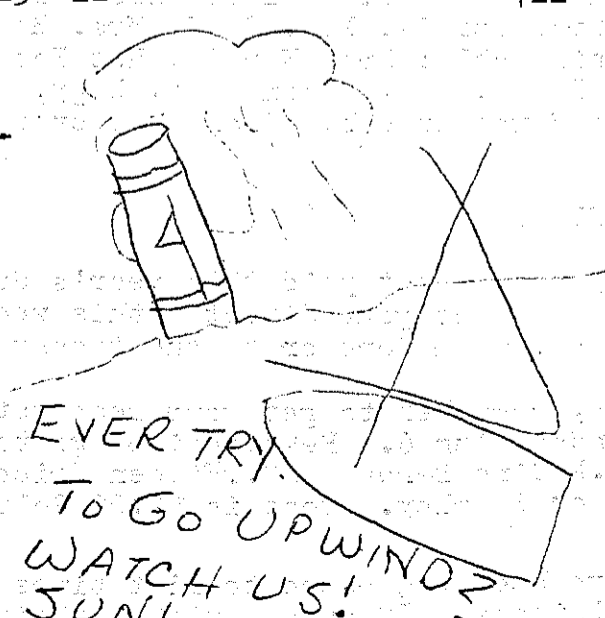 EVER TRY
TO GO UPWIND?
WATCH US!
SUN!